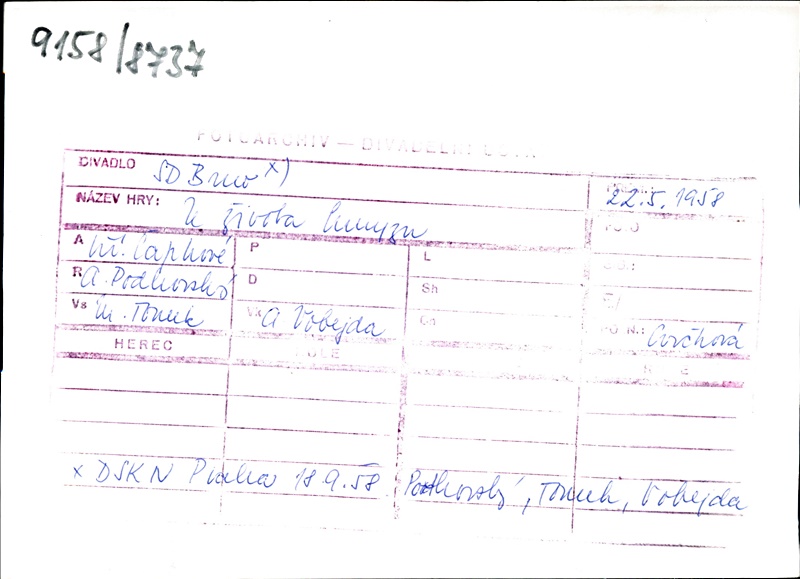 9158/8737
FOTOARCHIV — DIVADELNÍ ÚSTAV
DIVADLO SD Brno x)
22.5.1958
NÁZEV HRY: Ze života hmyzu
A bří Čapkové P L
R A. Podhorský D Sh
Vs M. Tomek Vk A Vobejda Ch
FOTO N.: Cvrčková
HEREC ROLE
x DSKN Praha 18.9.58 Podhorský, Tomek, Vobejda